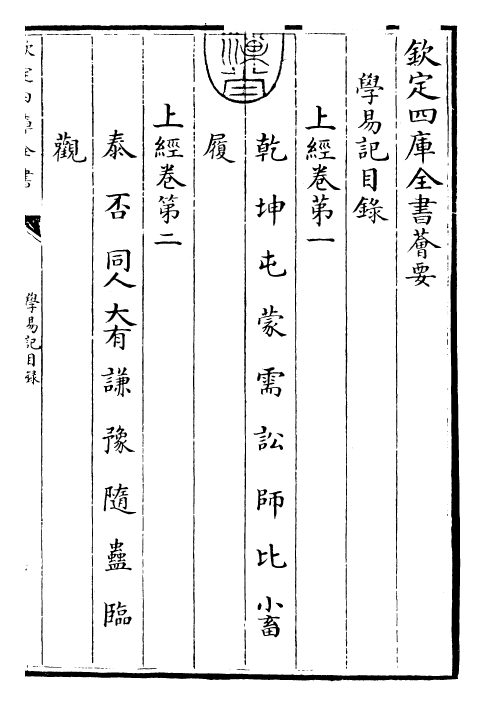 欽定四庫全書薈要
學易記目錄
上經卷第一
乾 坤 屯 蒙 需 訟 師 比 小畜
履
上經卷第二
泰 否 同人 大有 謙 豫 隨 蠱 臨
觀
欽定四庫全書
學易記目錄